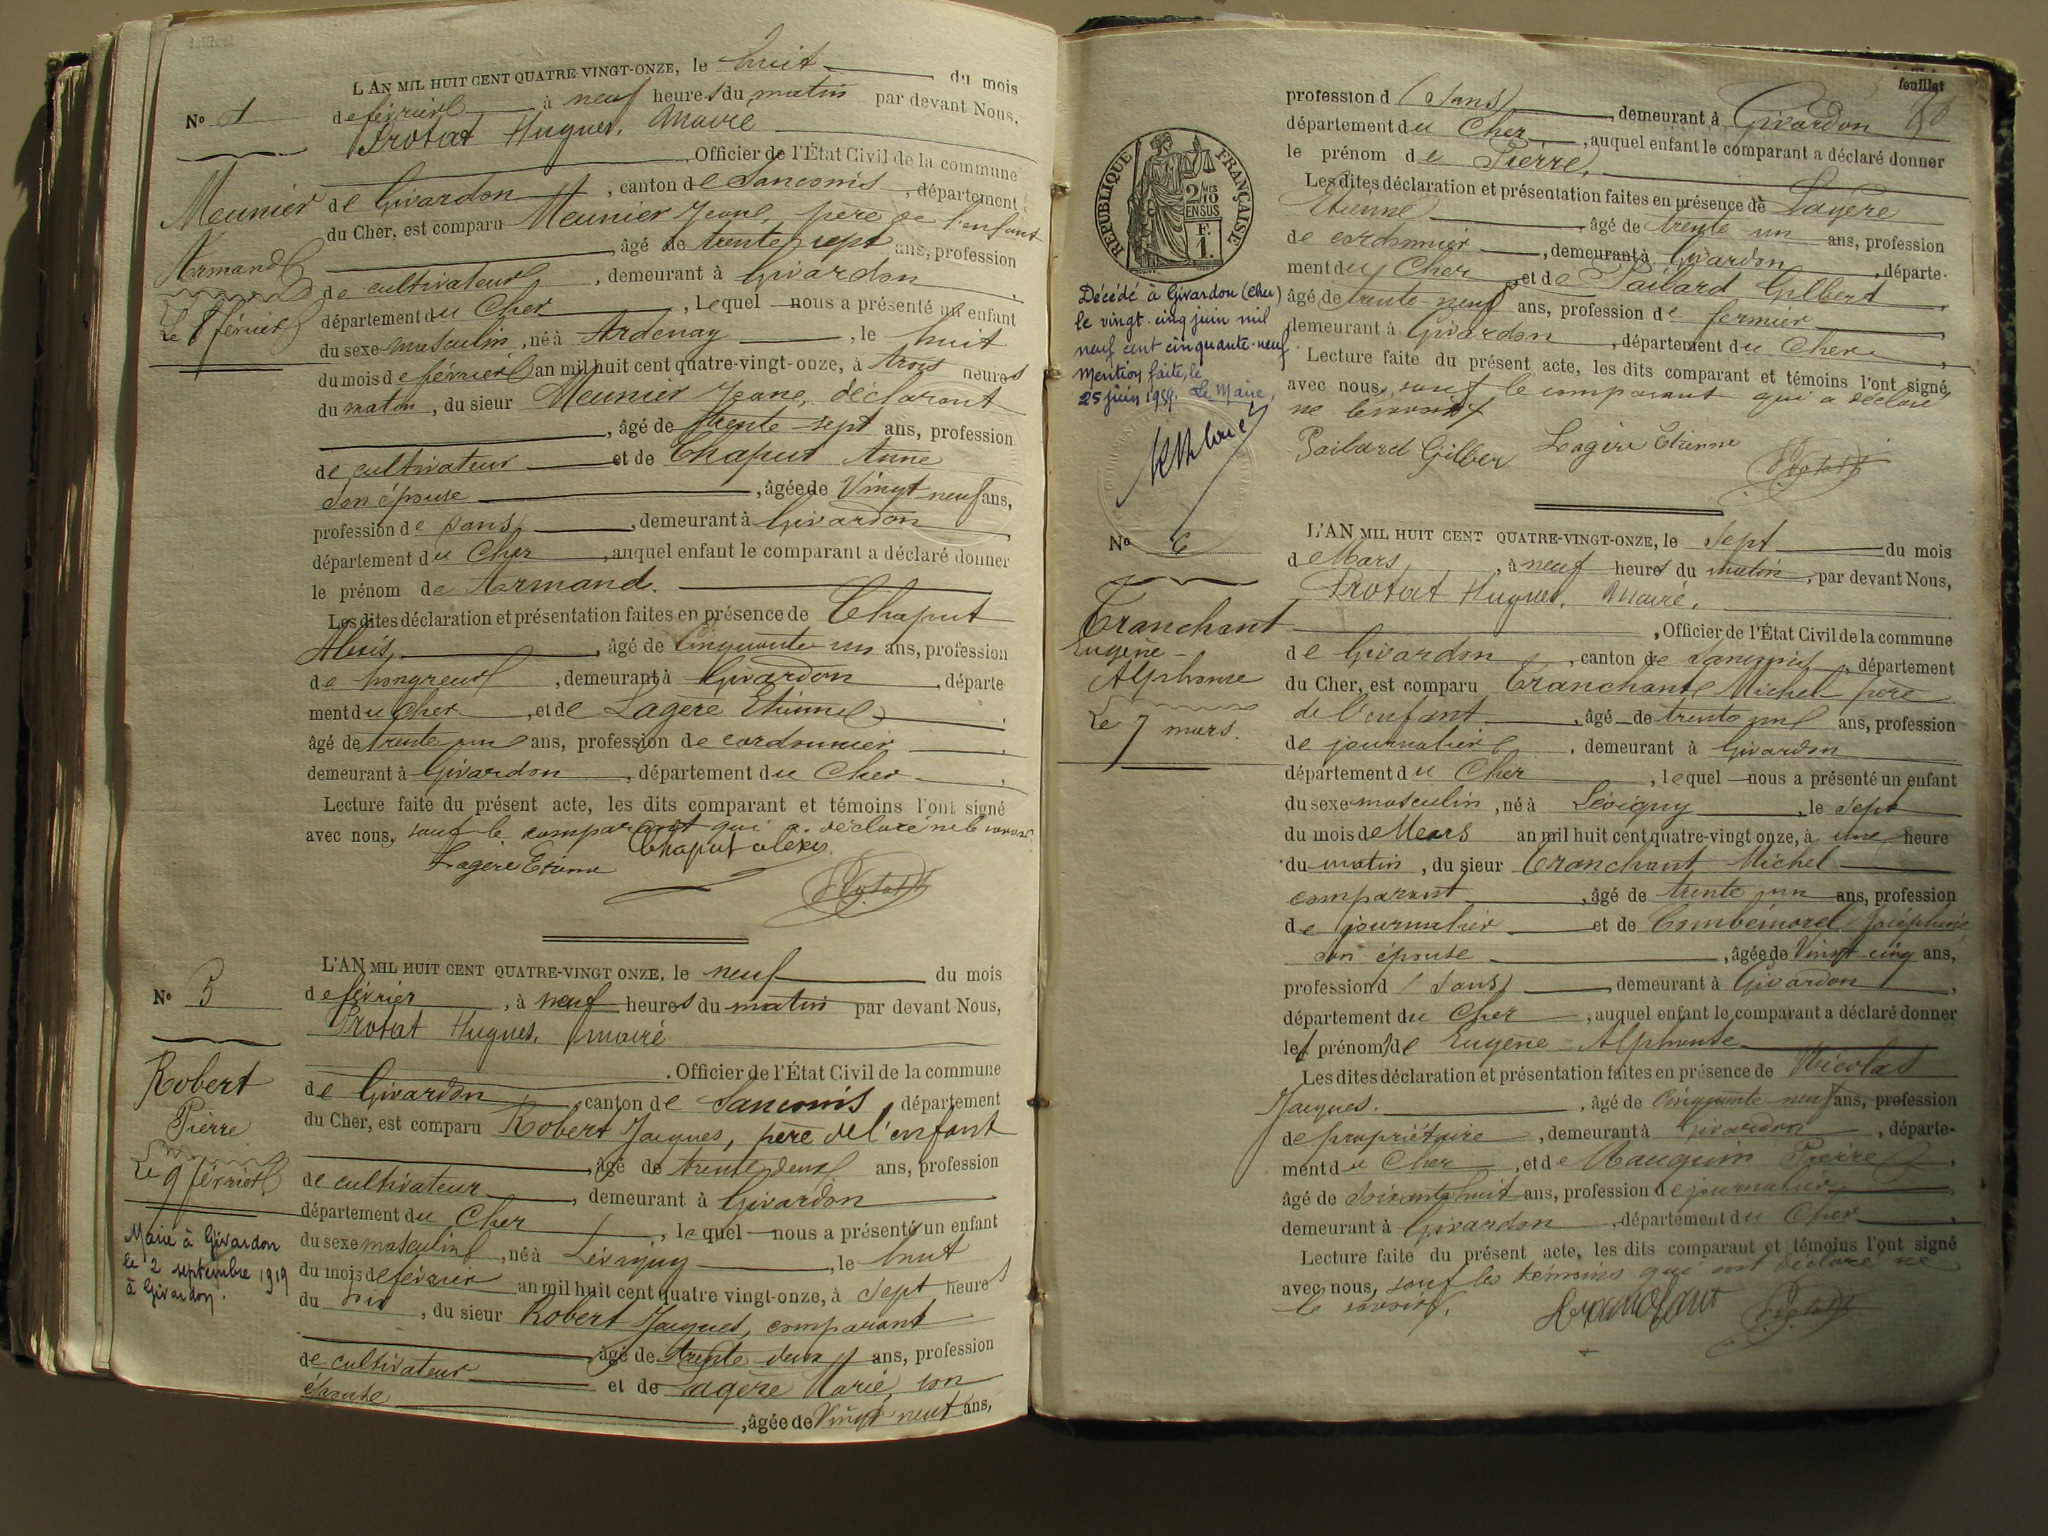 L'AN MIL HUIT CENT QUATRE VINGT-ONZE, le huit du mois
de février à neuf heures du matin par devant Nous,
Protat Hugues, Maire
Officier de l'État Civil de la commune
de Givardon, canton de Sancoins, département
du Cher, est comparu Meunier Jeane, père de l'enfant
âgé de trente sept ans, profession
de cultivateur, demeurant à Givardon
département du Cher, lequel nous a présenté un enfant
du sexe masculin, né à Ardenay, le huit
du mois de février an mil huit cent quatre-vingt-onze, à trois heures
du matin, du sieur Meunier Jeane, déclarant
, âgé de trente-sept ans, profession
de cultivateur et de Chaput Anne
son épouse, âgée de Vingt neuf ans,
profession de sans, demeurant à Givardon
département du Cher, auquel enfant le comparant a déclaré donner
le prénom de Armand.
Les dites déclaration et présentation faites en présence de Chaput
Alexis, âgé de Cinquante un ans, profession
de hongreur, demeurant à Givardon, départe
ment du Cher, et de Lagère Etienne
âgé de trente un ans, profession de cordonnier
demeurant à Givardon, département du Cher
Lecture faite du présent acte, les dits comparant et témoins l'ont signé
avec nous, sauf le comparant qui a déclaré ne le savoir
Lagère Etienne Chaput alexis
Protat
N° 4
Meunier
Armand
Le 8 février
L'AN MIL HUIT CENT QUATRE-VINGT ONZE, le neuf du mois
de février, à neuf heures du matin par devant Nous,
Protat Hugues, maire
Officier de l'État Civil de la commune
de Givardon, canton de Sancoins, département
du Cher, est comparu Robert Jacques, père de l'enfant
âgé de trente deux ans, profession
de cultivateur, demeurant à Givardon
département du Cher, lequel nous a présenté un enfant
du sexe masculin, né à Lévigny, le huit
du mois de février an mil huit cent quatre vingt-onze, à sept heures
du soir, du sieur Robert Jacques, comparant
âgé de trente deux ans, profession
de cultivateur et de Lagère Marie, son
épouse, âgée de Vingt neuf ans,
N° 5
Robert
Pierre
Le 9 février
Marié à Givardon
le 2 septembre 1919
à Givardon.
feuillet
80
profession d (sans), demeurant à Givardon
département du Cher, auquel enfant le comparant a déclaré donner
le prénom de Pierre,
Les dites déclaration et présentation faites en présence de Lagère
Etienne, âgé de trente un ans, profession
de cordonnier, demeurant à Givardon, départe-
ment du Cher, et de Pailard Gilbert
âgé de trente-neuf ans, profession de fermier
demeurant à Givardon, département du Cher,
Lecture faite du présent acte, les dits comparant et témoins l'ont signé
avec nous, sauf le comparant qui a déclaré
ne le savoir
Pailard Gilber Lagère Etienne Protat
RÉPUBLIQUE FRANÇAISE
2/10 MES
EN SUS
F.
1.
Décédé à Givardon (Cher)
le vingt-cinq juin mil
neuf cent cinquante-neuf.
Mention faite, le
25 juin 1959. Le Maire,
N° 6
Tranchant
Eugène-
Alphonse
Le 7 mars.
L'AN MIL HUIT CENT QUATRE-VINGT-ONZE, le sept du mois
de Mars, à neuf heures du matin, par devant Nous,
Protat Hugues, Maire,
, Officier de l'État Civil de la commune
de Givardon, canton de Sancoins, département
du Cher, est comparu Tranchant Michel père
de l'enfant, âgé de trente un ans, profession
de journalier, demeurant à Givardon
département du Cher, lequel nous a présenté un enfant
du sexe masculin, né à Lévigny, le sept
du mois de Mars an mil huit cent quatre-vingt onze, à une heure
du matin, du sieur Tranchant Michel
comparant, âgé de trente un ans, profession
de journalier et de Combémorel Joséphine
son épouse, âgée de Vingt cinq ans,
profession d (sans), demeurant à Givardon,
département du Cher, auquel enfant le comparant a déclaré donner
les prénoms de Eugène-Alphonse
Les dites déclaration et présentation faites en présence de Nicolas
Jacques, âgé de Cinquante neuf ans, profession
de propriétaire, demeurant à Givardon, départe-
ment du Cher, et de Mauguin Pierre,
âgé de soixante huit ans, profession de journalier
demeurant à Givardon, département du Cher
Lecture faite du présent acte, les dits comparant et témoins l'ont signé
avec nous, sauf les témoins qui ont déclaré ne
le savoir.
Tranchant Protat